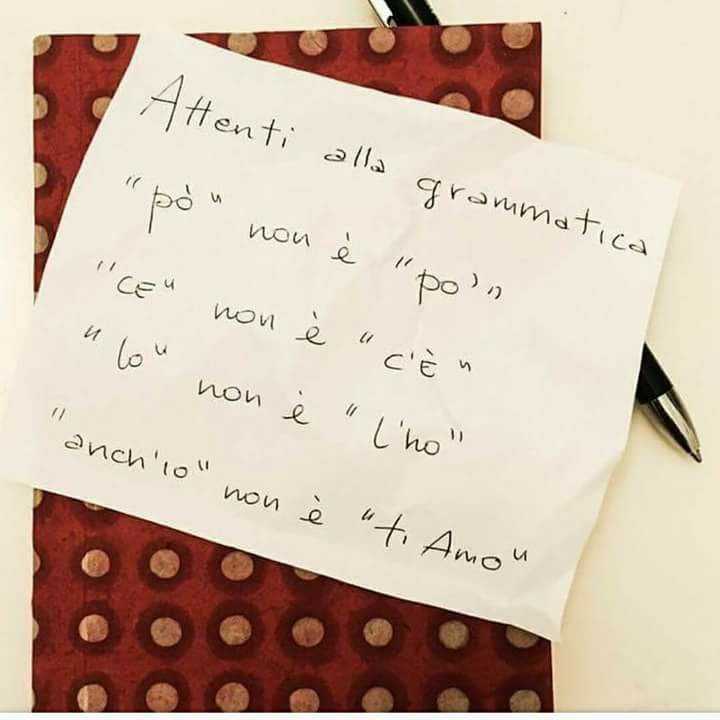 Attenti alla grammatica
"pò" non è "po'"
"CE" non è "C'È"
"lo" non è "l'ho"
"anch'io" non è "ti Amo"